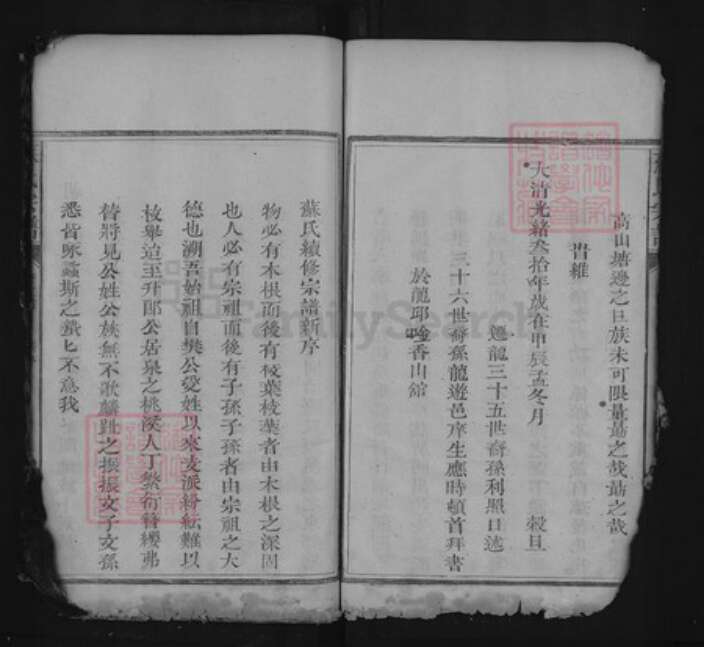 高山塘邊之巨族未可限量勗之哉勗之哉
旹維
大清光緒叁拾年歲在甲辰孟冬月 穀旦
遷龍三十五世裔孫利照口述
三十六世裔孫龍遊邑庠生應時頓首拜書
於龍邱唫香山舘
蘇氏續修宗譜新序
物必有木根而後有枝葉枝葉者由木根之深固
也人必有宗祖而後有子孫子孫者由宗祖之大
德也溯吾始祖自樊公受姓以來支派紛紜難以
枚舉迨至升郎公居泉之桃溪人丁繁衍簪纓弗
替將見公姓公族無不歌麟趾之振振文子文孫
悉皆咏螽斯之蟄蟄不意我
FamilySearch